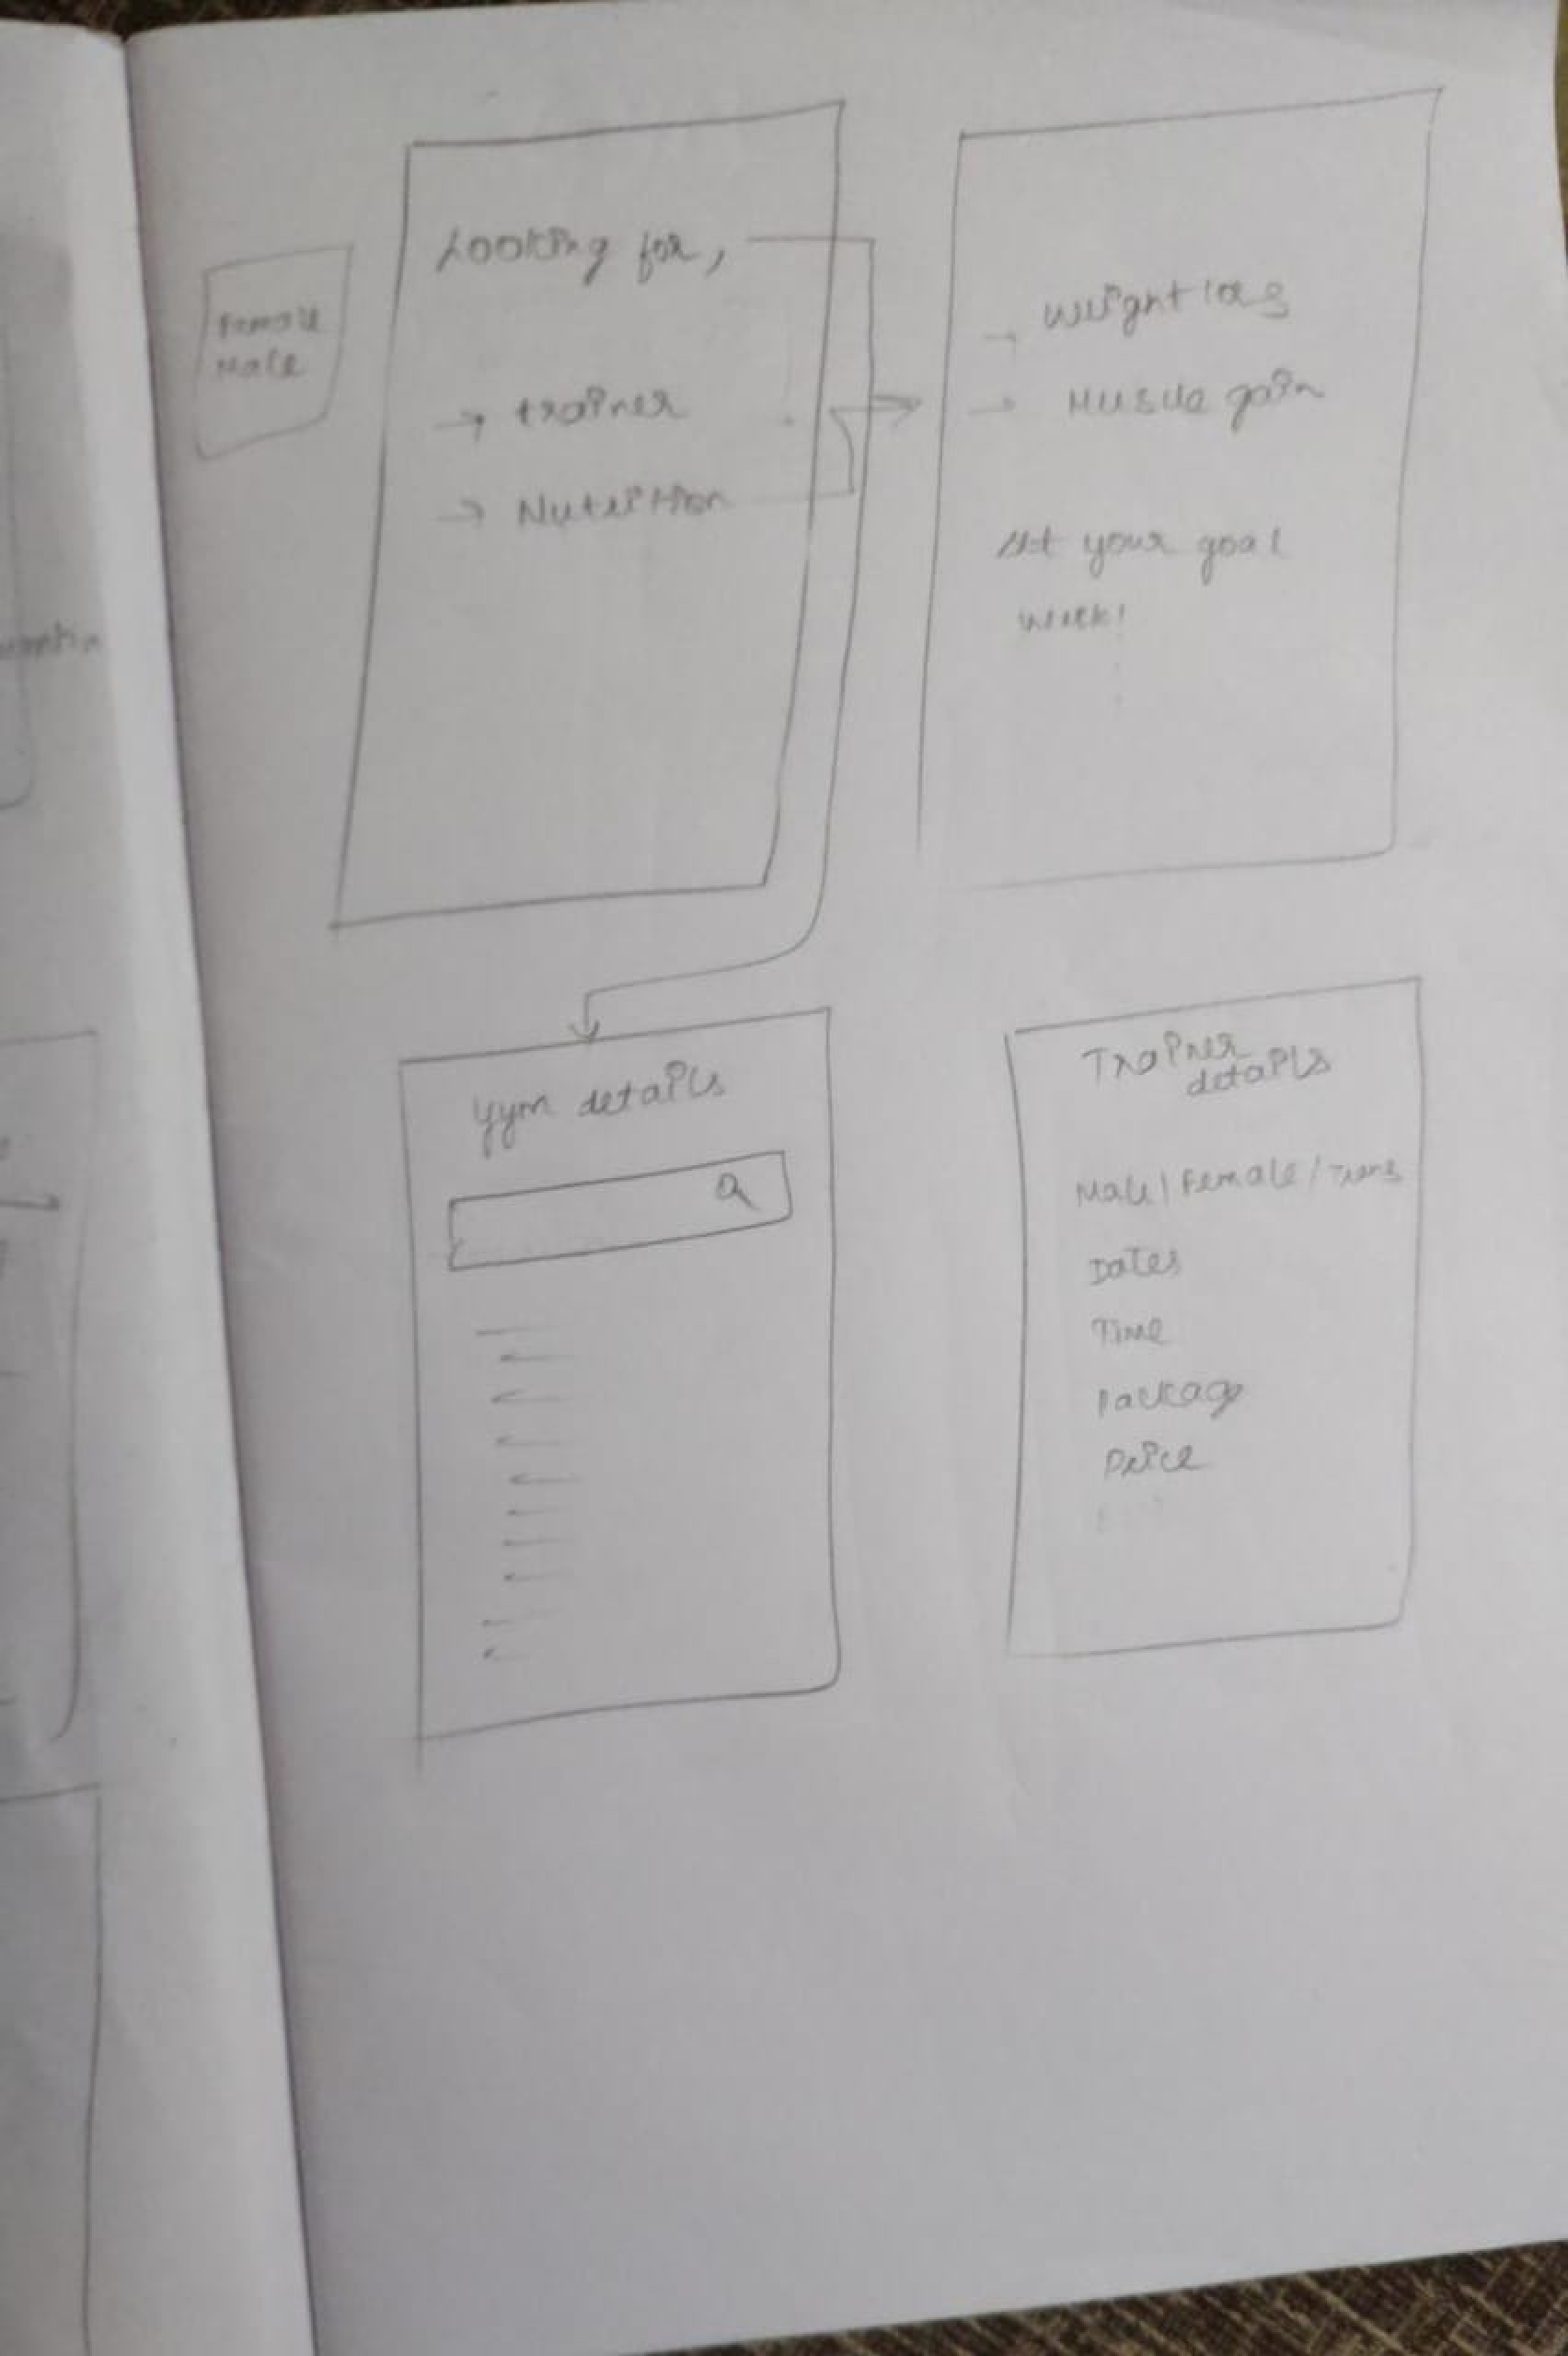 Female
Male
Looking for,
→ trainer
→ Nutrition
→ Weight loss
→ Muscle gain
set your goal
week!
gym details
Trainer
details
Male/Female/Trans
Dates
Time
Package
Price